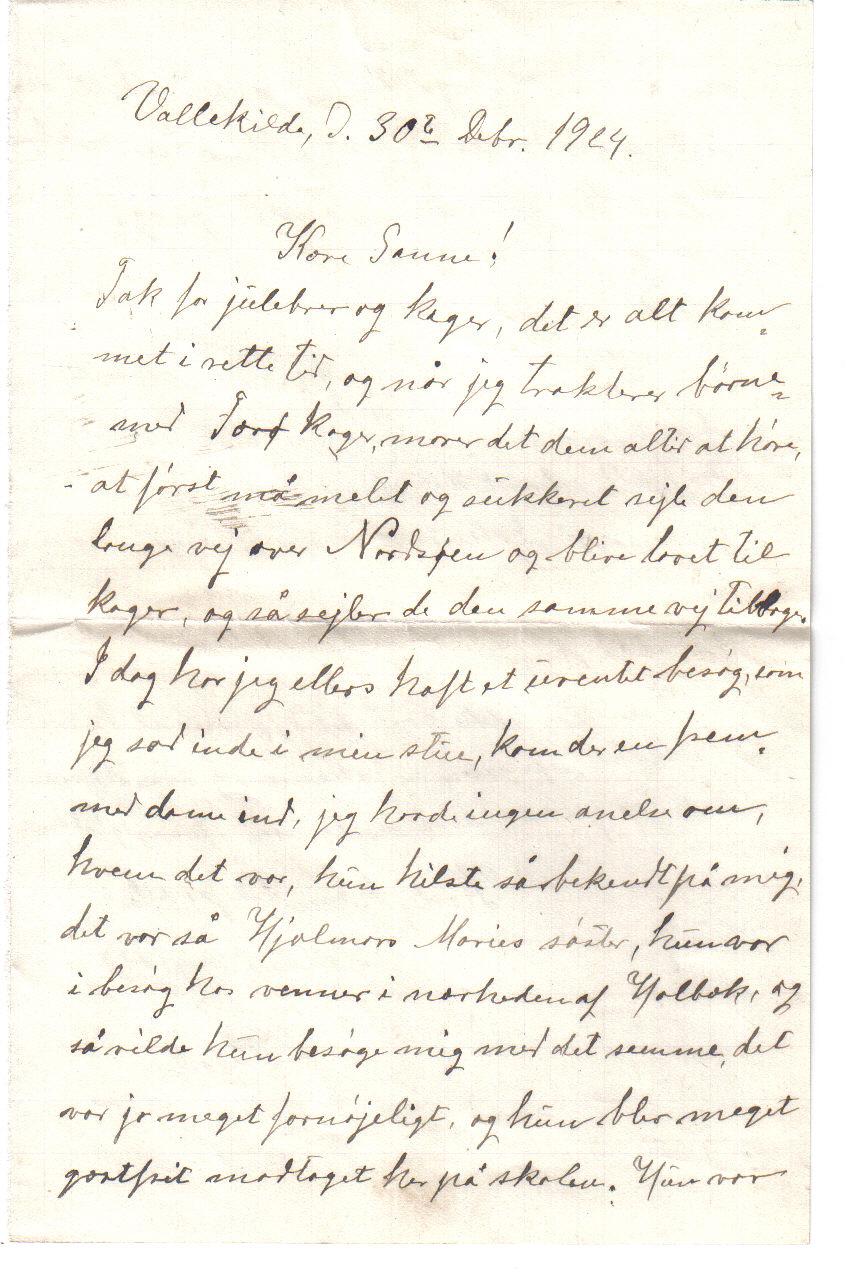 Vallekilde, D. 30te Debr. 1924.
Kære Sanne!
Tak for julebrev og kager, det er alt kom-
met i rette tid, og når jeg trakterer børne=
med Færø kager, morer det dem altid at høre,
at først må melet og sukkeret sejle den
lange vej over Nordsøen og blive lavet til
kager, og så sejler de den samme vej tilbage.
I dag har jeg ellers haft et uventet besøg, som
jeg sad inde i min stue, kom der en frem-
med dame ind, jeg havde ingen anelse om,
hvem det var, hun hilste så bekendt på mig,
det var så Hjalmars Maries søster, hun var
i besøg hos venner i nærheden af Holbæk, og
så vilde hun besøge mig med det samme, det
var jo meget fornøjeligt, og hun blev meget
gæstfrit modtaget her på skolen. Hun var